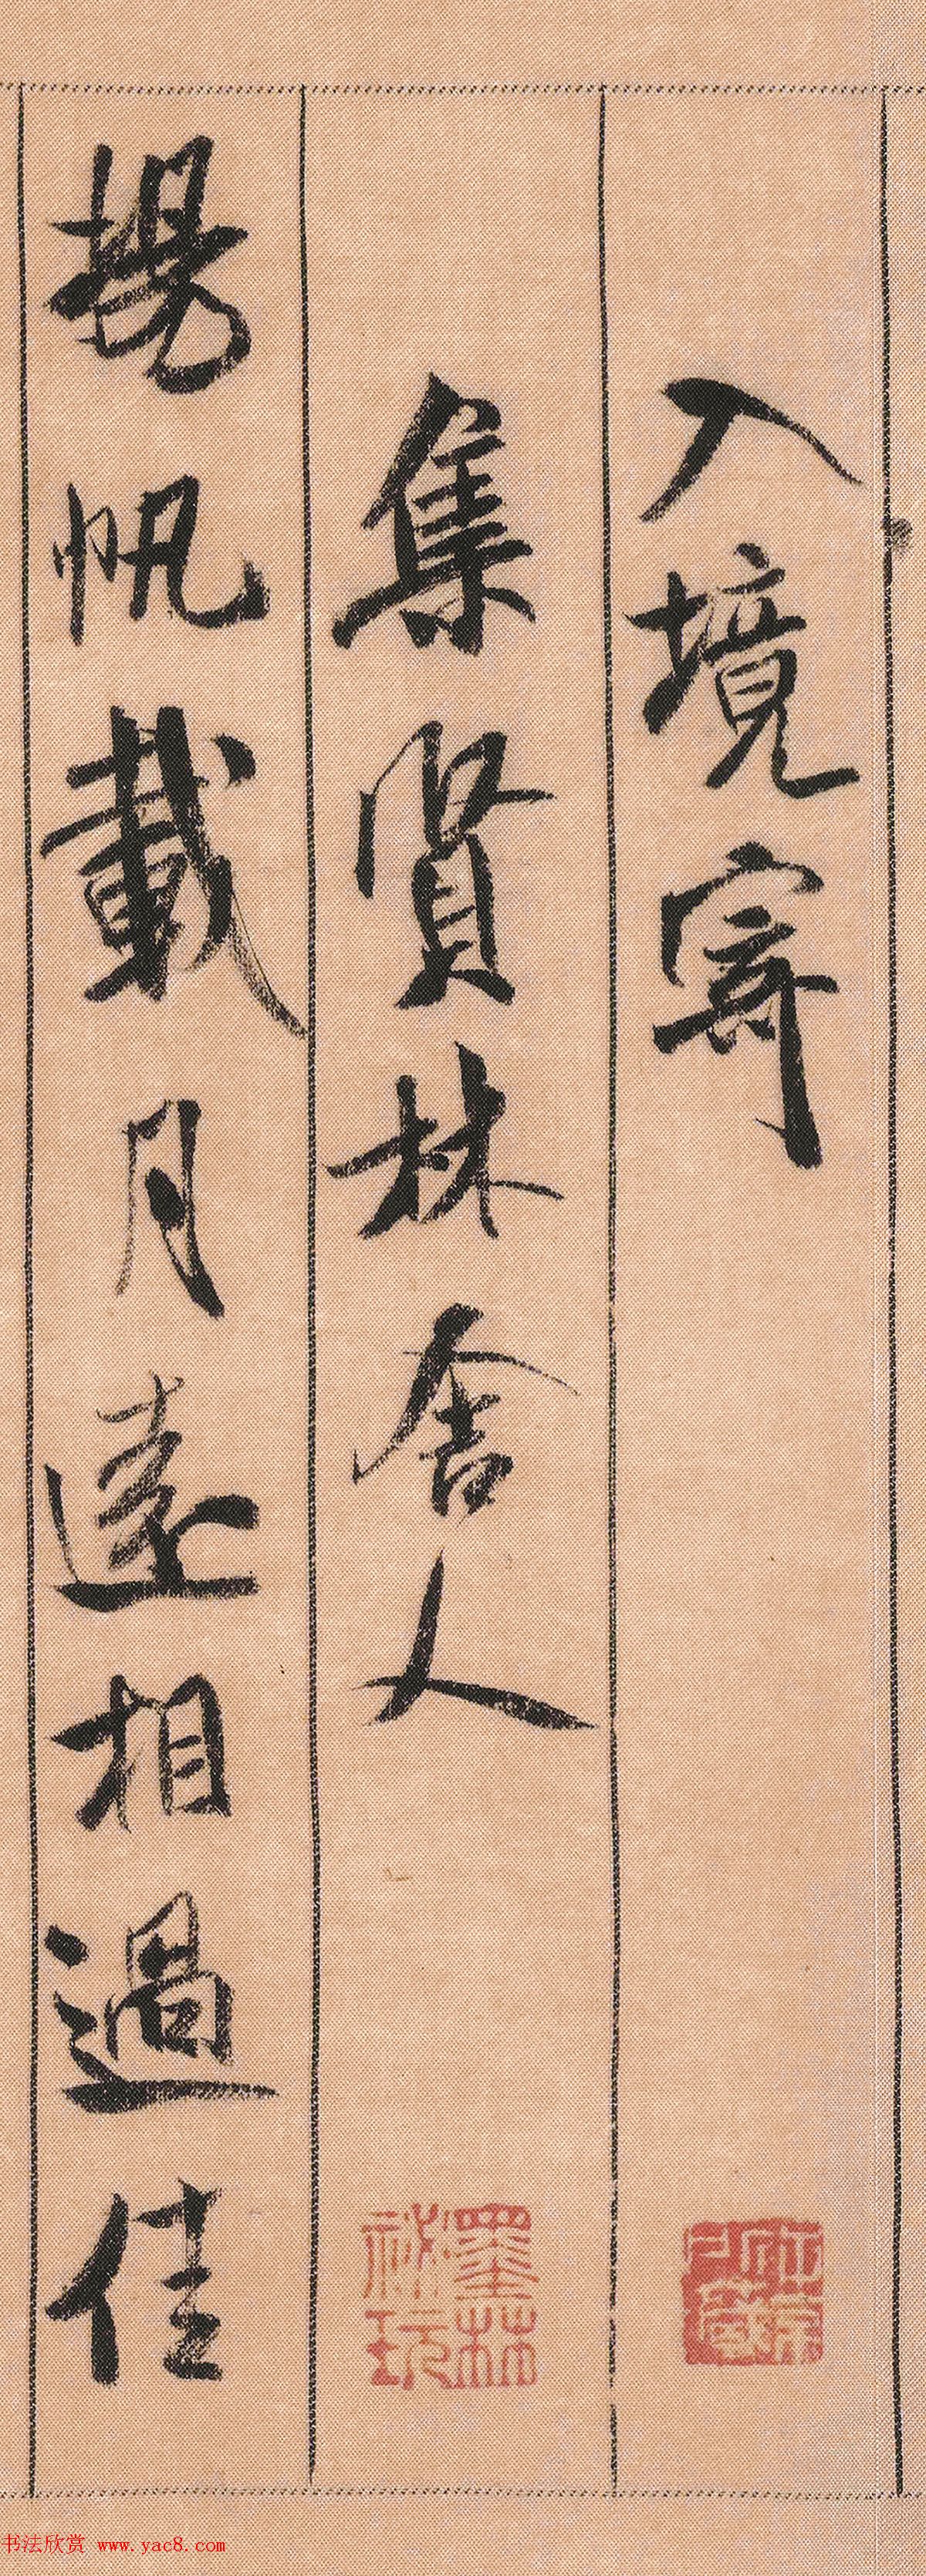 入境寄
集賢林舍人
揚帆載月遠相過佳
墨林秘玩
书法欣赏 www.yac8.com